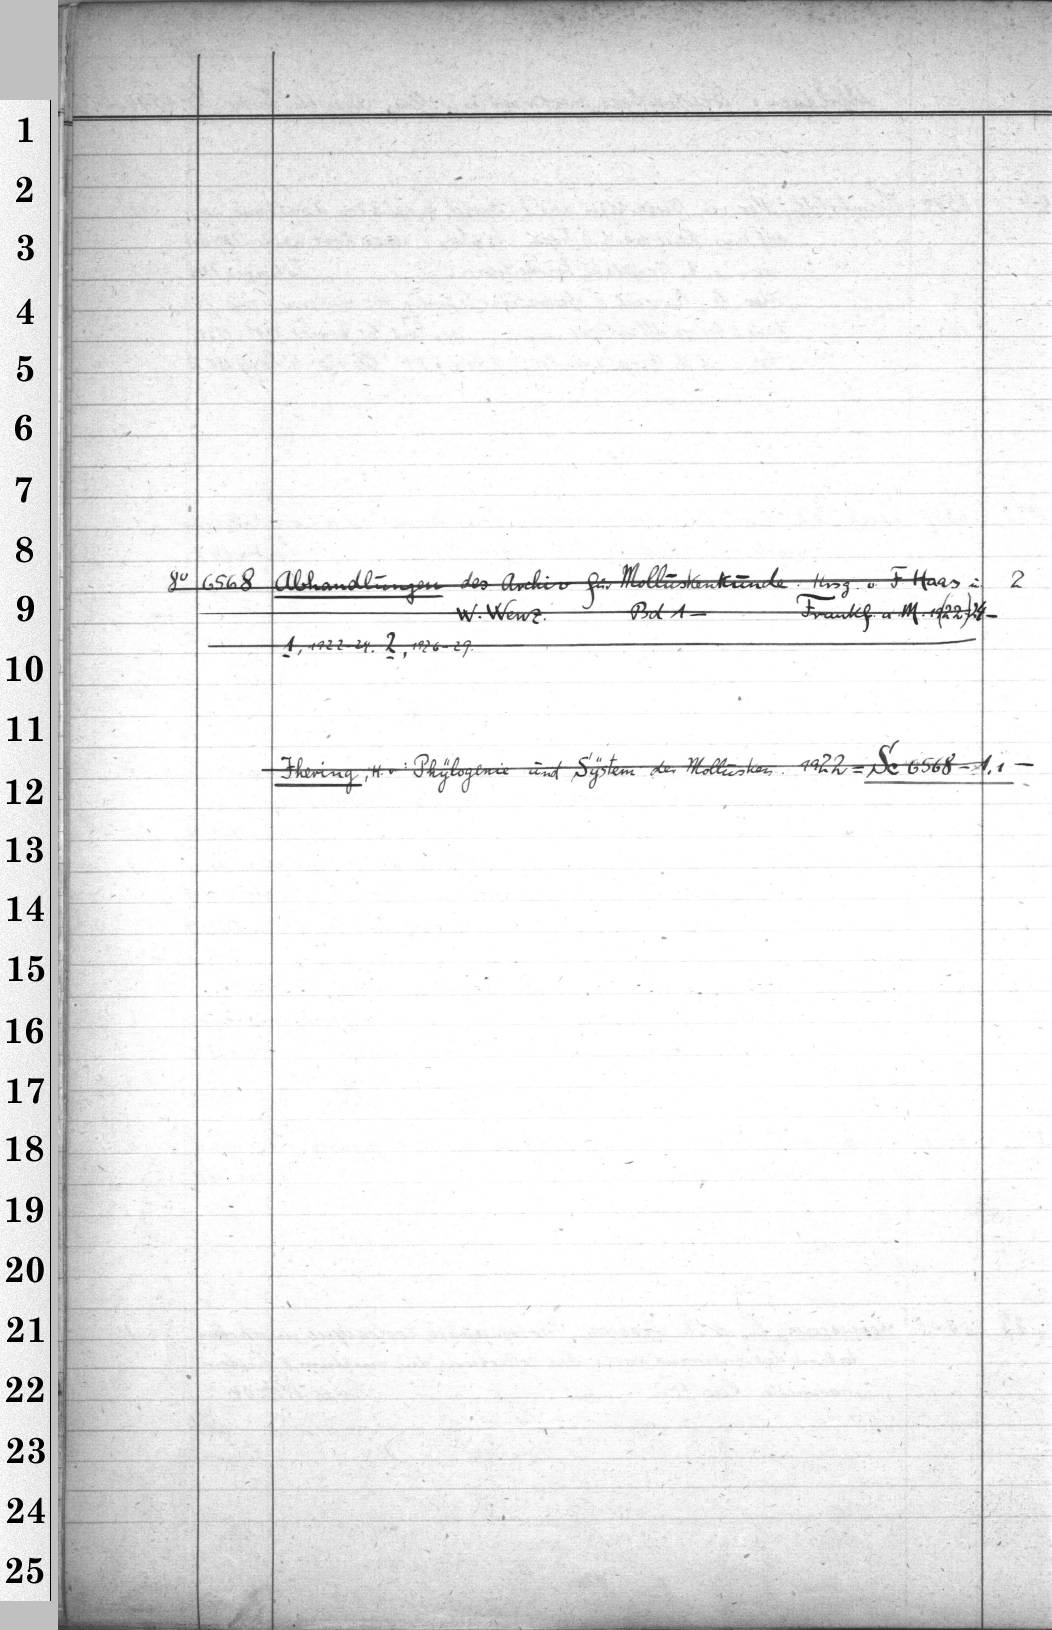 1
2
3
4
5
6
7
8
8° 6568 Abhandlungen des Archiv für Molluskenkunde. Hrsg. v. F Haas u. 2
9
W. Wenz. Bd 1— Frankf. a. M. 19(22)24—
1, 1922-24. 2, 1926-29.
10
11
Ihering, H. v: Phylogenie und System der Mollusken. 1922 = Sc 6568 – 1,1 —
12
13
14
15
16
17
18
19
20
21
22
23
24
25